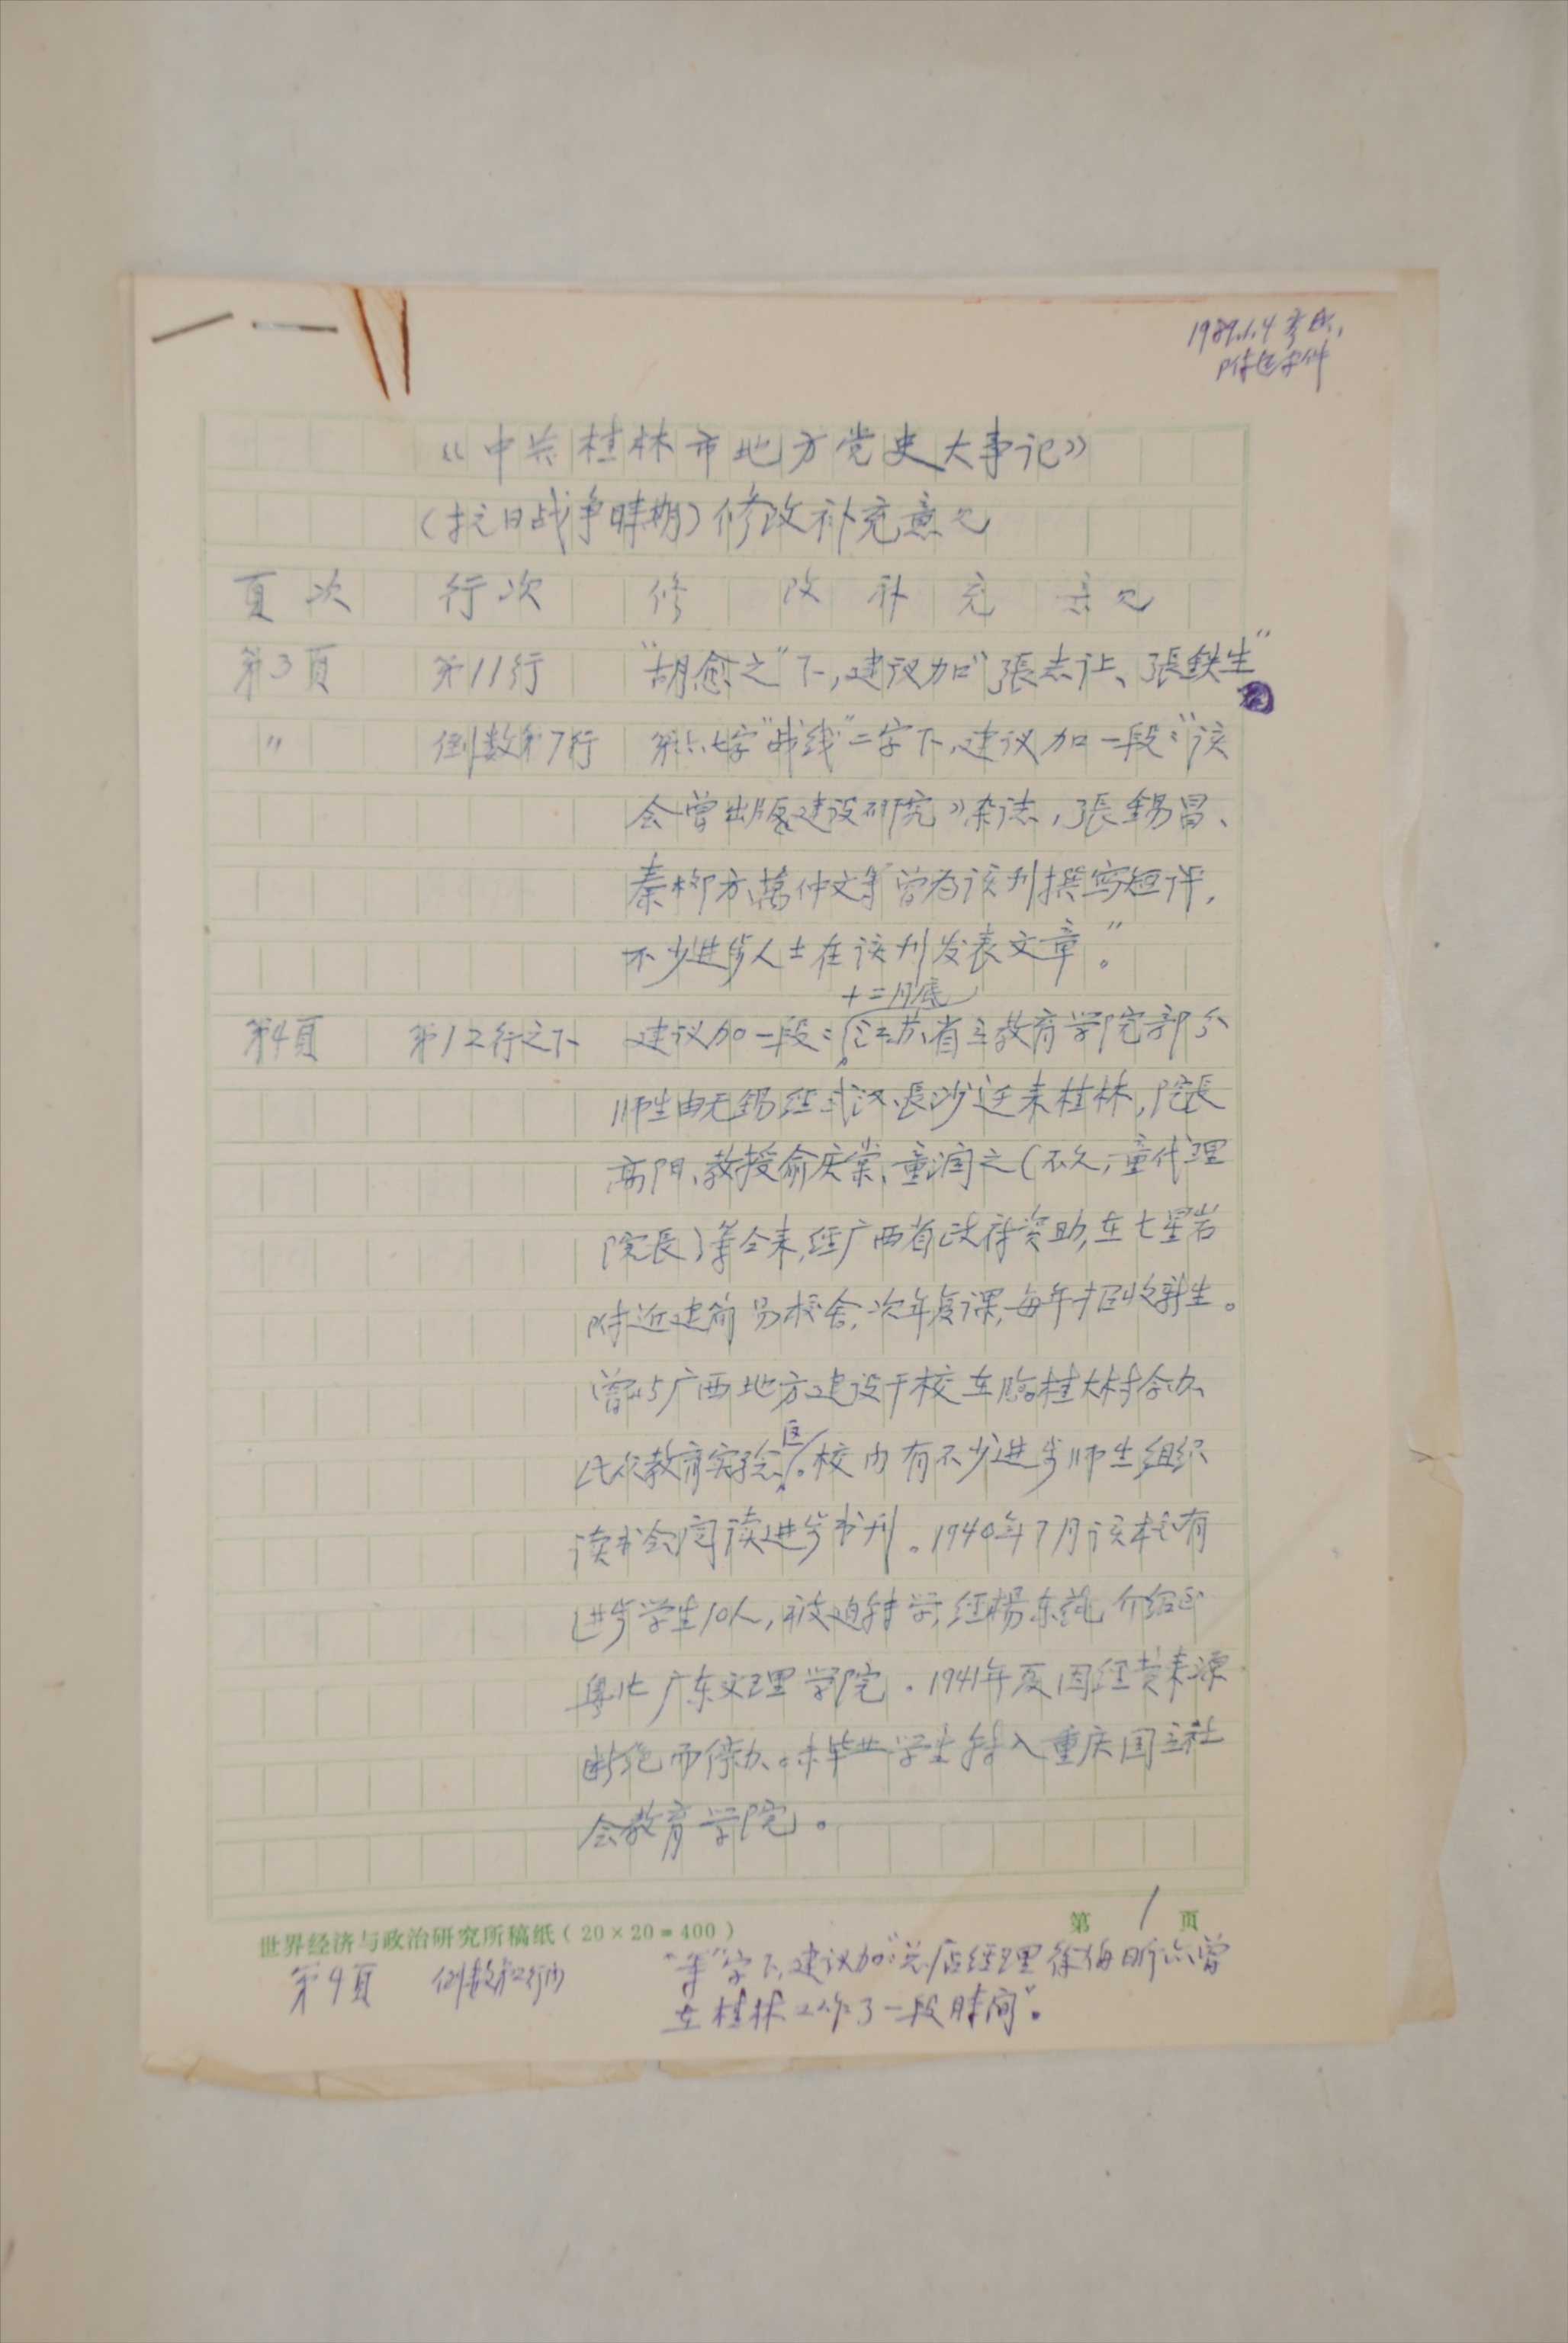 1989.1.4
《中共桂林市地方党史大事记》
(抗日战争時期)修改补充意见
頁次 行次 修改补充意见
第3頁 第11行 “胡愈之”下,建议加“張志让、張鉄生”
〃 倒数第7行 “战线”二字下,建议加一段:“该
会曾出版《建设研究》杂志,張錫昌、
秦柳方、萬仲文等曾为该刊撰写短评,
不少进步人士在该刊发表文章。”
十二月底
第4頁 第12行之下 建议加一段:江苏省立教育学院部分
师生由无錫经武汉、長沙迁来桂林,院長
高阳、教授俞庆棠、童润之(不久,童代理
院長)等仝来,经广西省政府资助,在七星岩
附近建简易校舍,次年复课,每年招收新生。
曾与广西地方建设干校在临桂大村合办
民众教育实验区。校内有不少进步师生组织
读书会阅读进步书刊。1940年7月该校有
进步学生10人,被迫转学,经楊东蒓介绍到
粤北广东文理学院。1941年夏因经费来源
断绝而停办。未毕业学生转入重庆国立社
会教育学院。
世界经济与政治研究所稿纸(20×20=400) 第 1 页
第9頁 倒数 “等”字下,建议加“总店经理徐伯昕亦曾
在桂林工作了一段时间”。